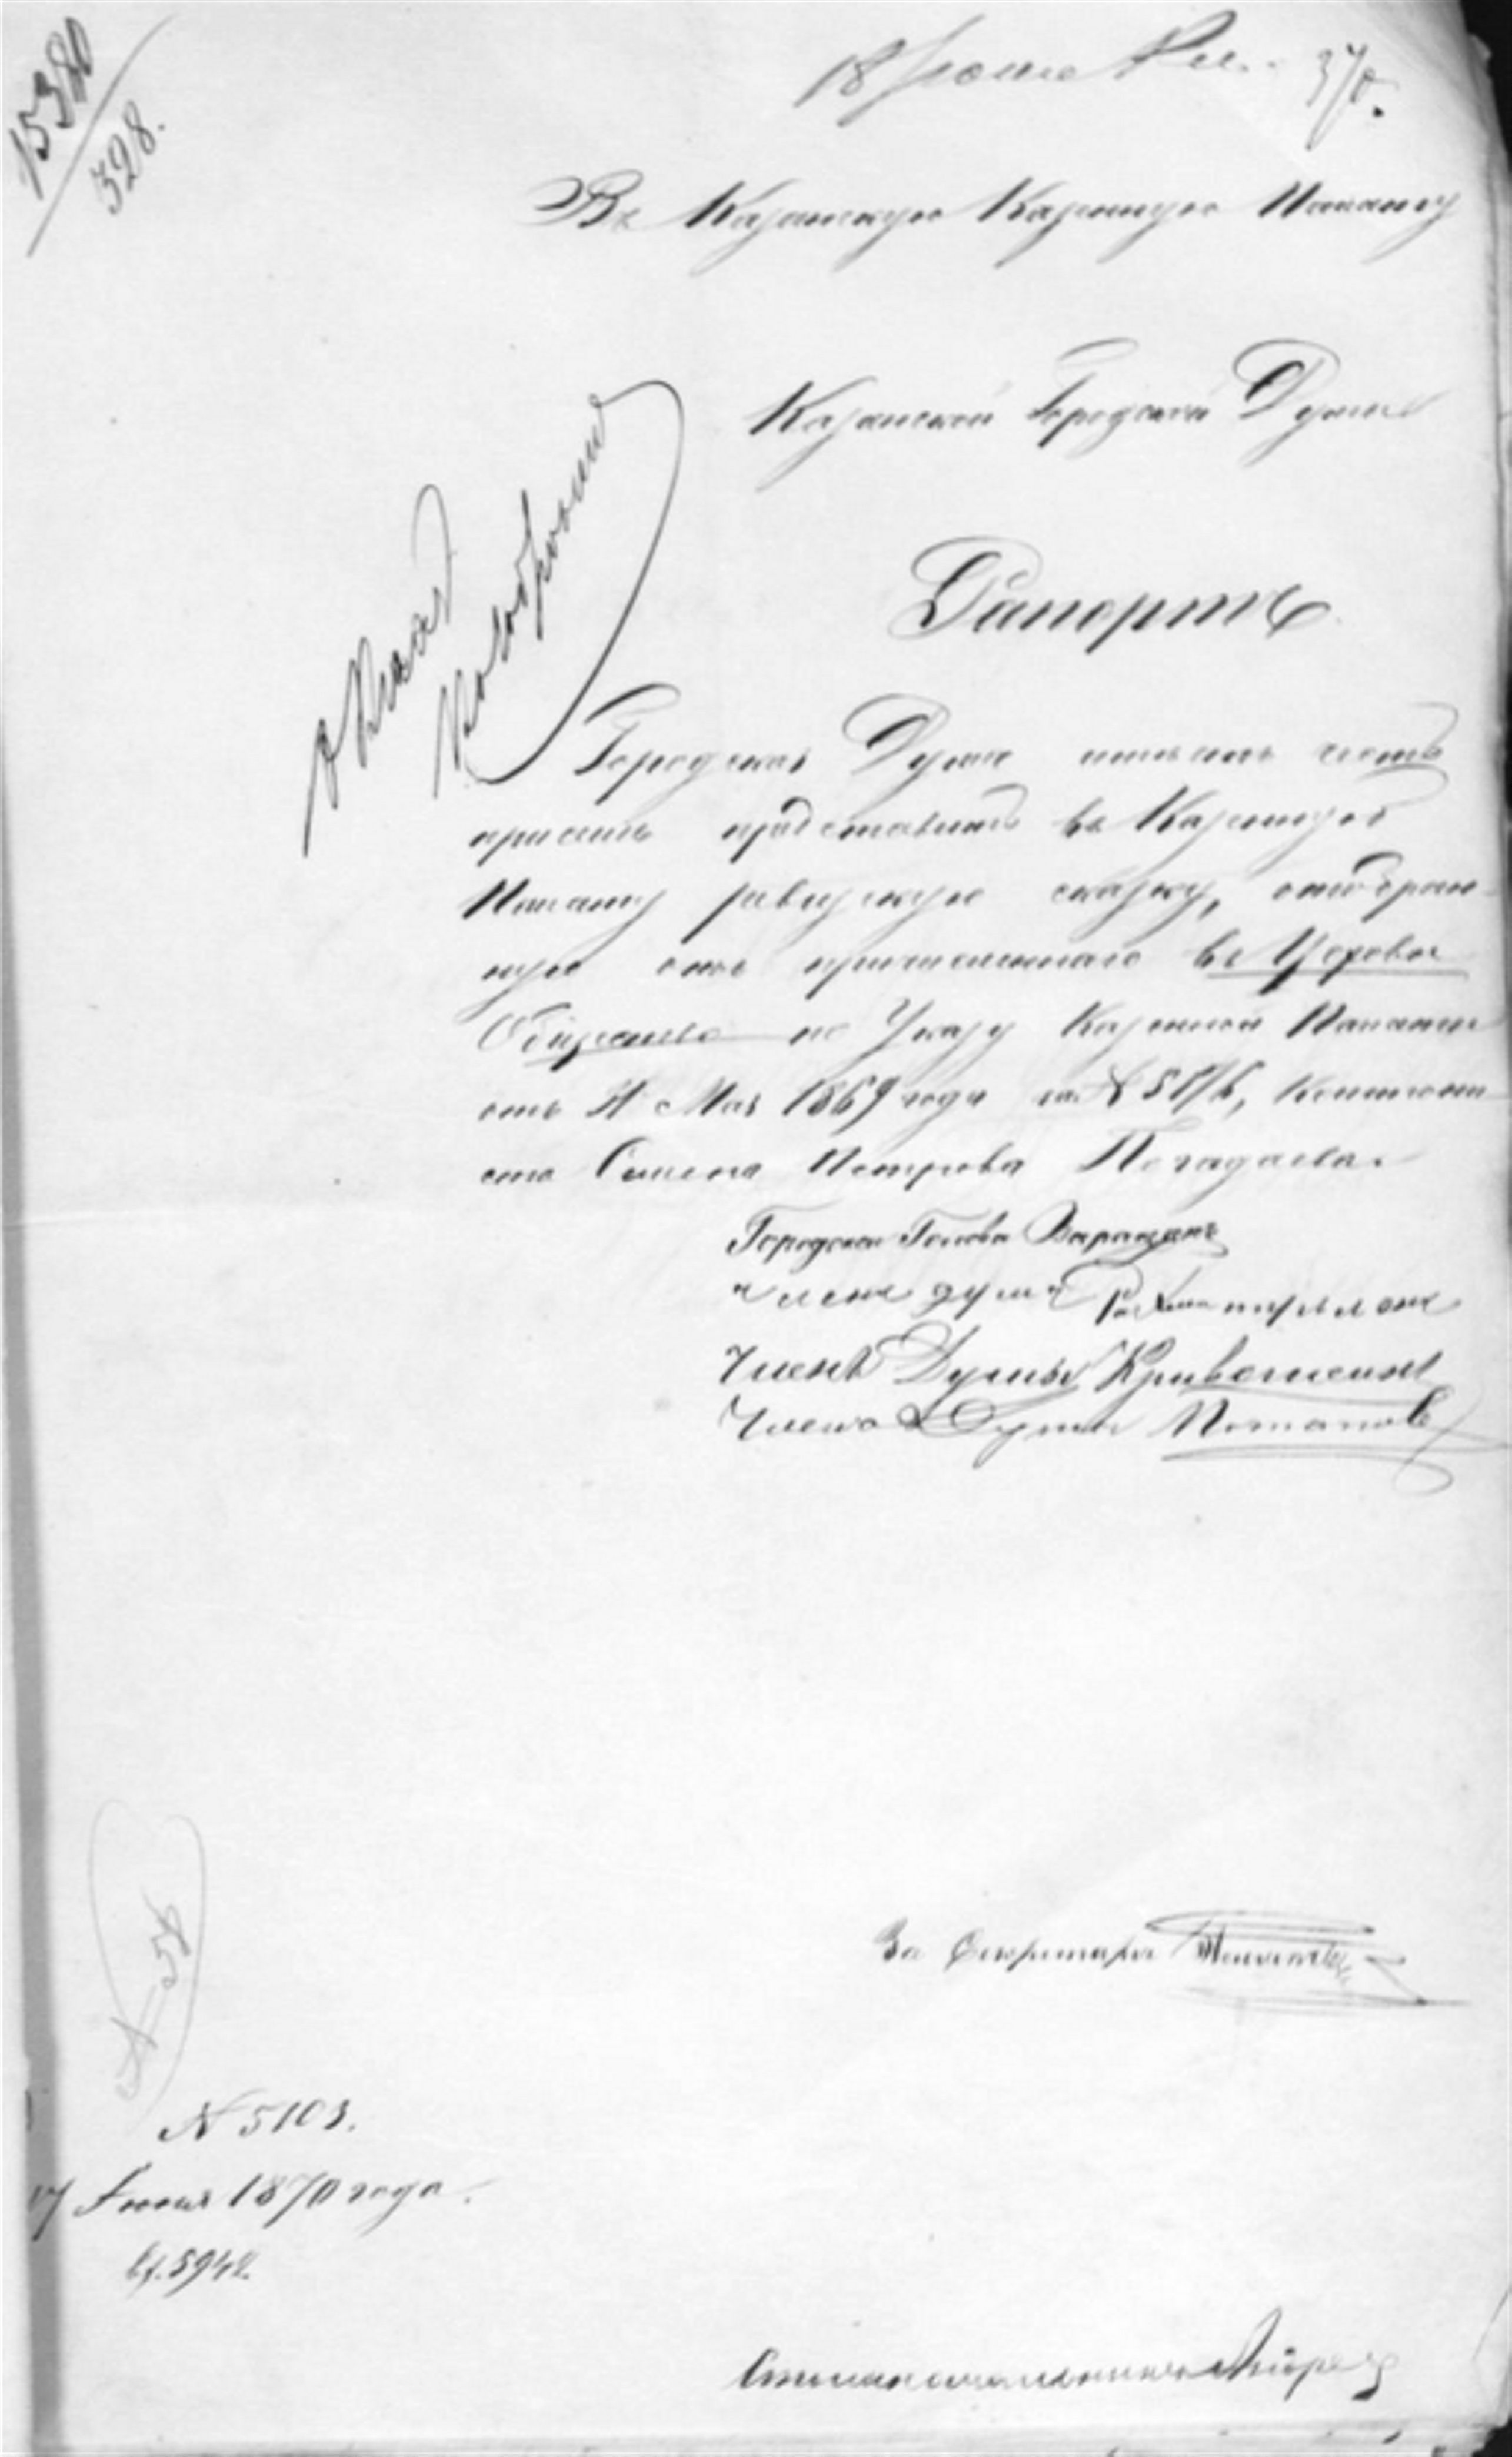 15380
328.
18 Іюня
370.
Въ Казанскую Казенную Палату
Казанской Городской Думы
Рапортъ
Городская Дума имѣетъ честь
при семъ представить въ Казенную
Палату ревизскую сказку, отобран-
ную отъ причисленнаго въ Цеховое
Общество по Указу Казенной Палаты
отъ Мая 1869 года за №, Кантони-
ста Семена Петрова Погадаева.
Городской Голова
Членъ думы
Членъ Думы Кривошеинъ
Членъ Думы Потаповъ
За Секретаря
№ 5103.
17 Іюня 1870 года.
5942.
Столоначальникъ